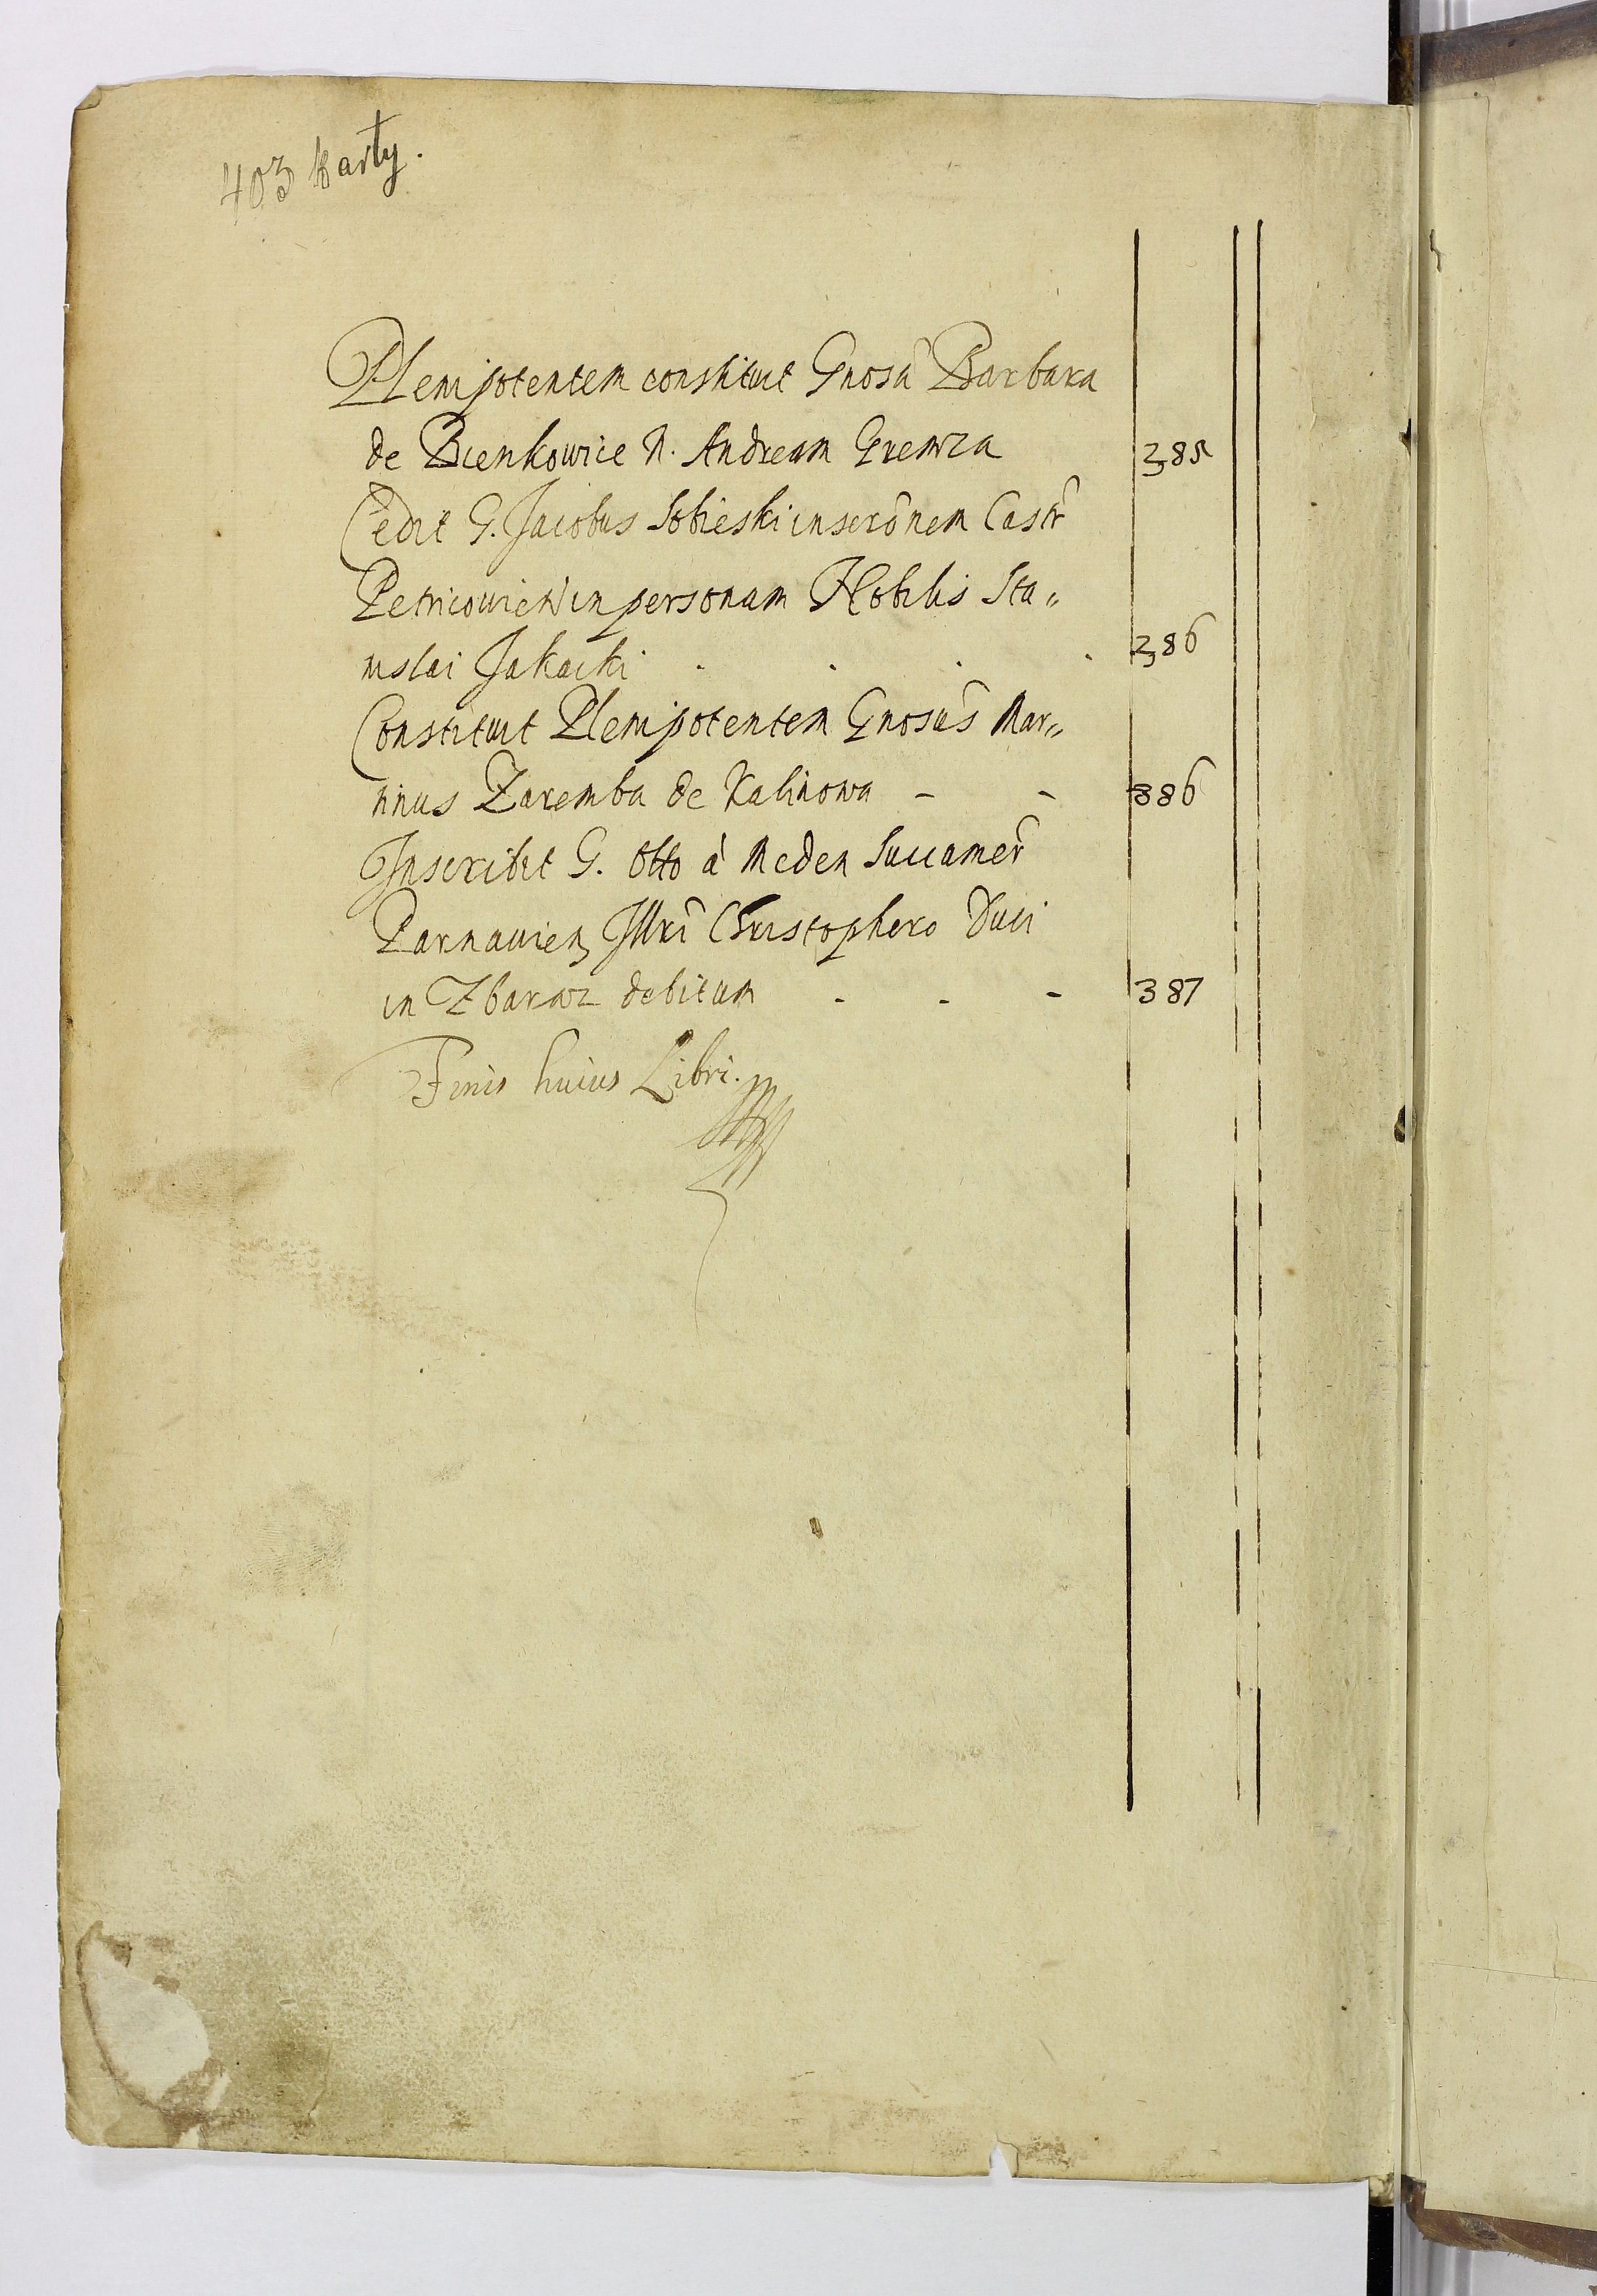 403 karty.
Plenipotentem constituit Gnosa Barbara
de Bienkowice N. Andream Gremza 385
Cedit G. Jacobus Sobieski inscrōnem Castr
Petricouien in personam Nobilis Sta„
nislai Jakacki . . . . 386
Constituit Plenipotentem Gnosus Mar„
tinus Zaremba de Kalinowa - - 386
Inscribit G. Otto à Meden Succamer
Parnauien Illri Christophero Duci
in Zbaraz debitum - - - 387
Finis huius Libri.